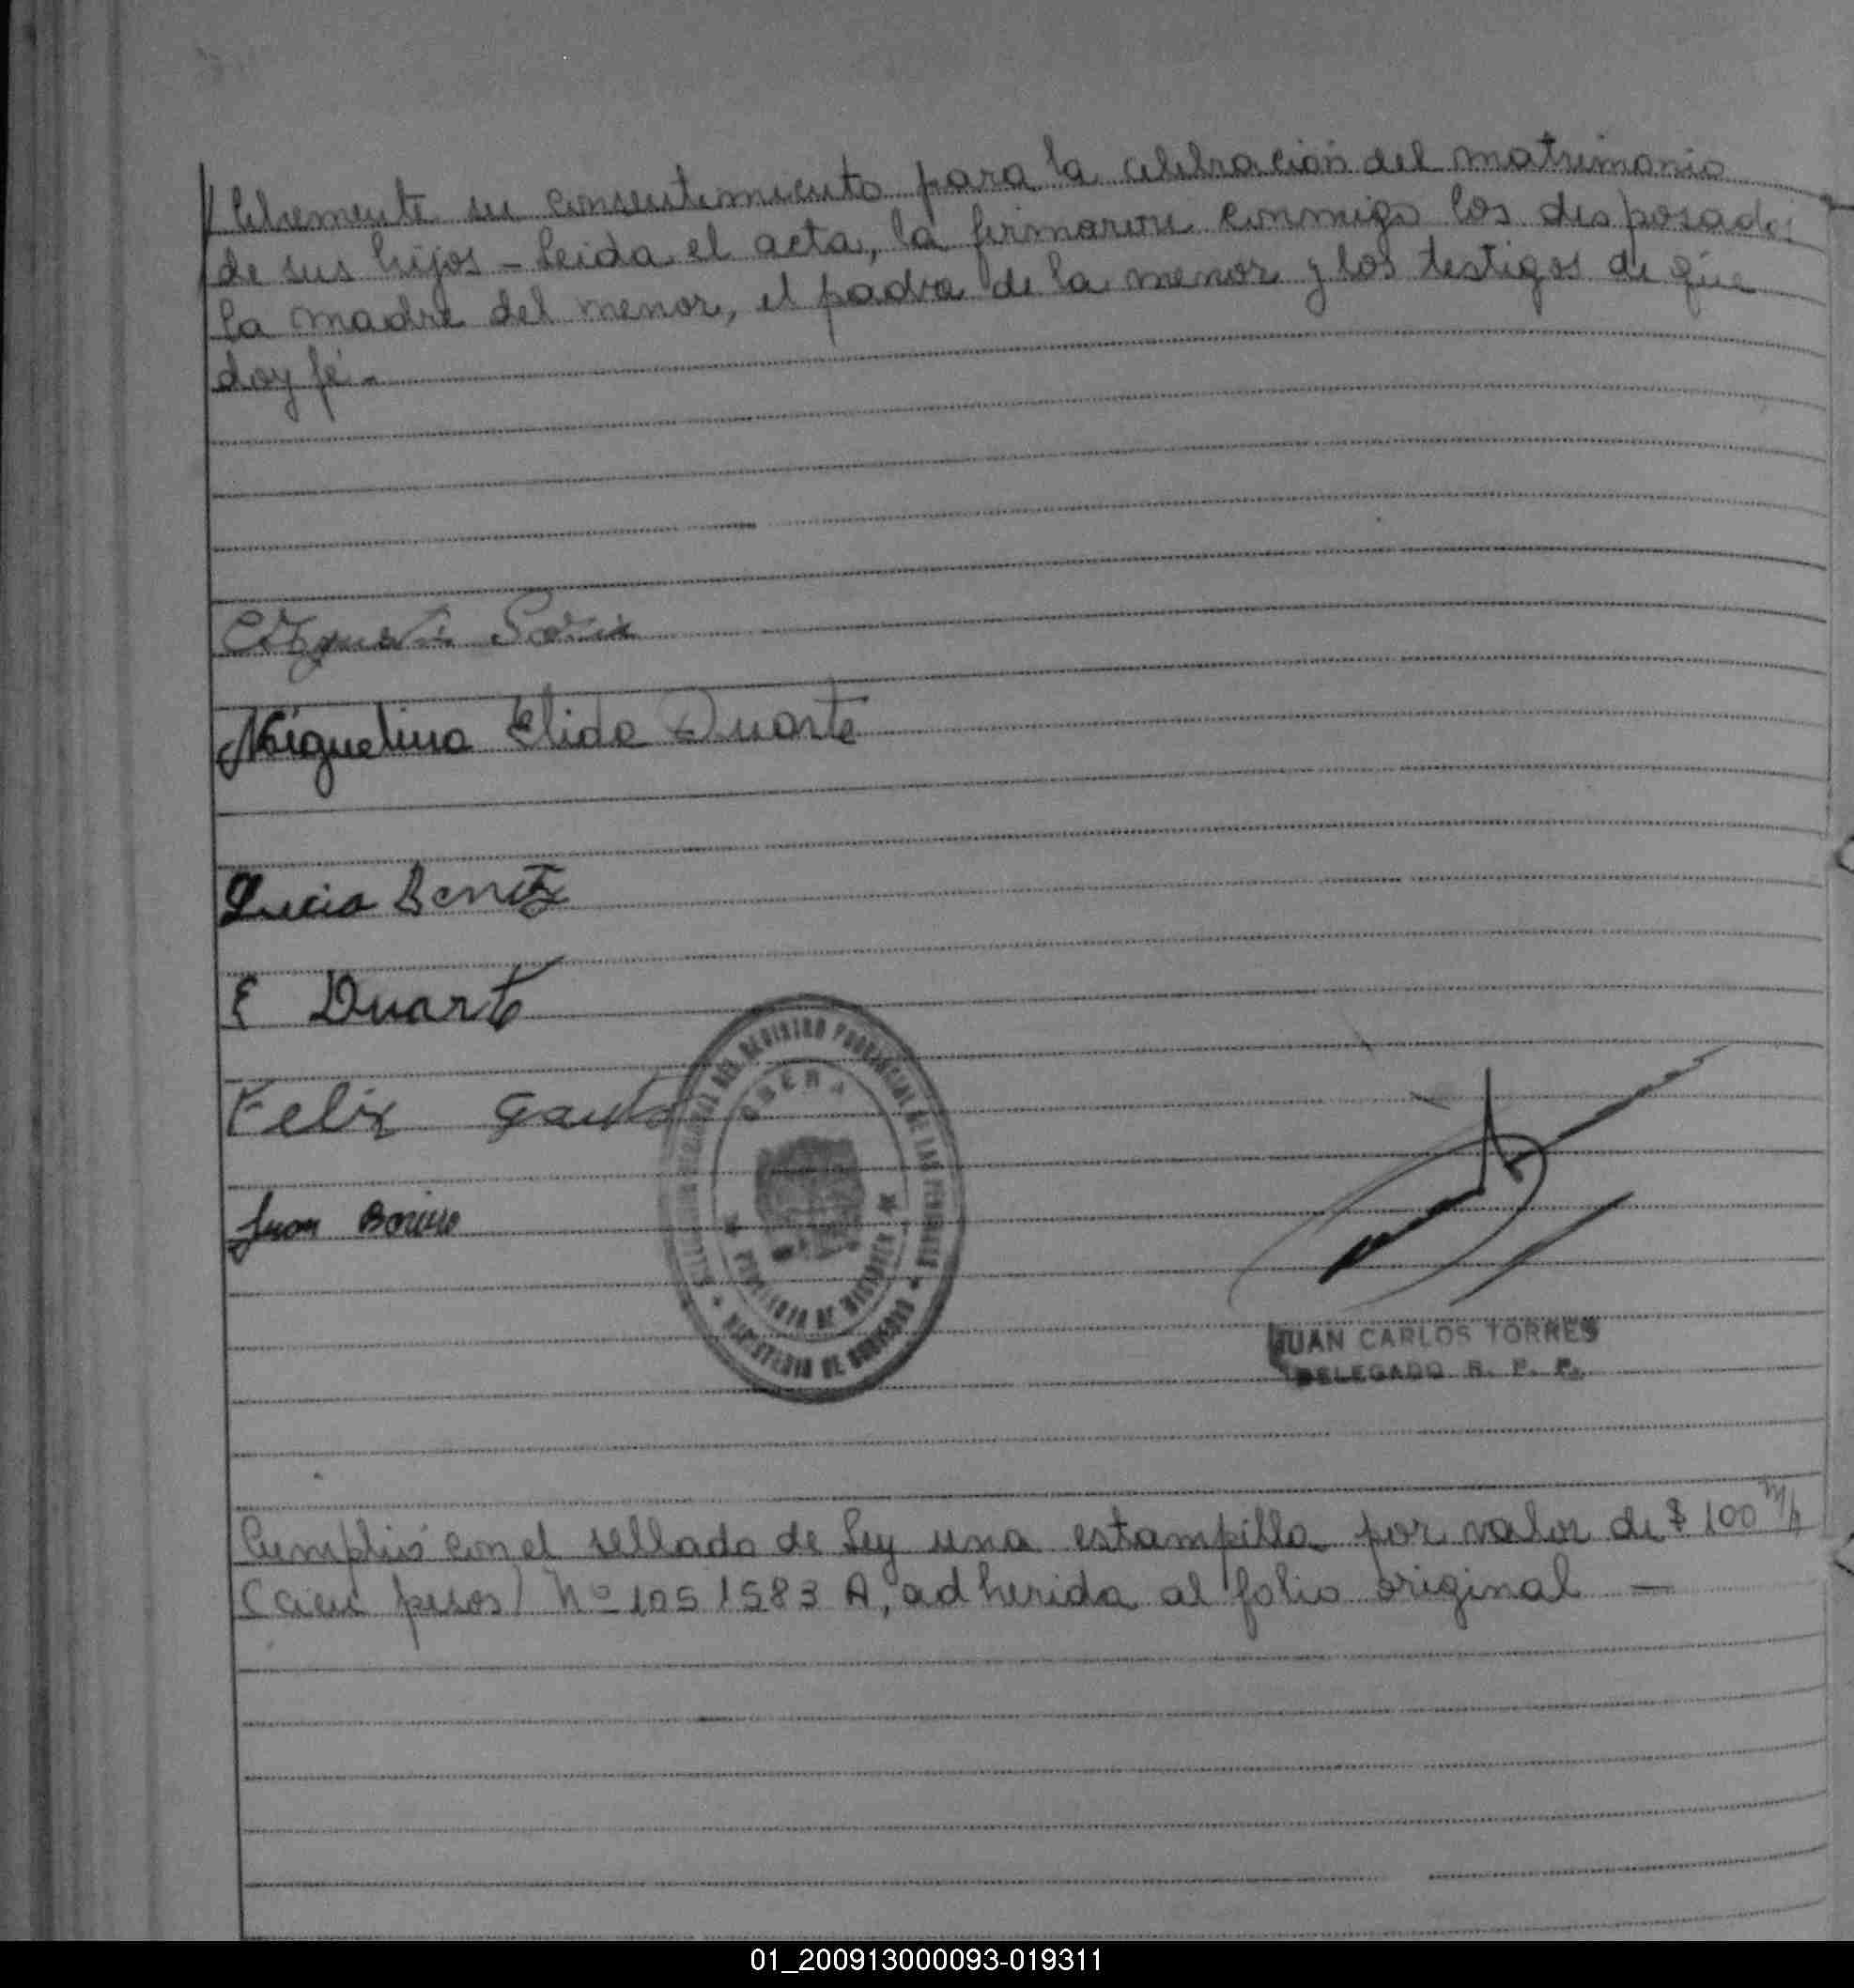 libremente su consentimiento para la celebración del matrimonio
de sus hijos - Leida el acta, la firmaron conmigo los desposados
la madre del menor, el padre de la menor y los testigos de que
doy fé -
Miguelina Elida Duarte
Lucia Benitez
E Duarte
Felix
Juan
DEL REGISTRO PROVINCIAL DE LAS PERSONAS
OBERA
PROVINCIA DE MISIONES
MINISTERIO DE GOBIERNO
JUAN CARLOS TORRES
DELEGADO R. P. P.
Cumplió con el sellado de Ley una estampilla por valor de $ 100 m/n
(cien pesos) Nº 1051583 A, adherida al folio original -
01_200913000093-019311